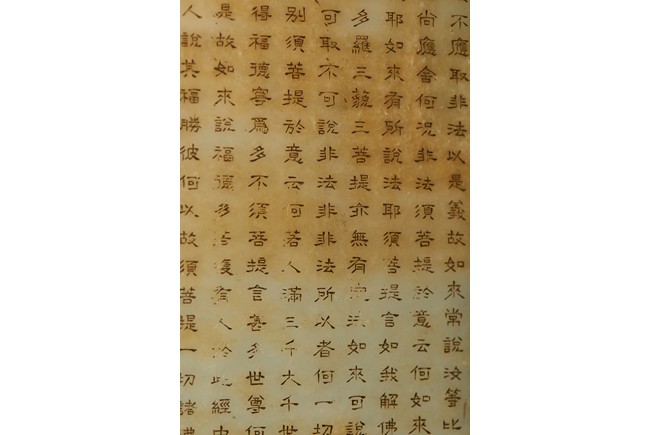 不應取非法以是義故如來常說汝等比
尚應舍何況非法須菩提於意云何如來
耶如來有所說法耶須菩提言如我解佛
多羅三藐三菩提亦無有定法如來可說
可取不可說非法非非法所以者何一切
別須菩提於意云何若人滿三千大千世
得福德寧爲多不須菩提言甚多世尊何
是故如來說福德多若復有人於此經中
人說其福勝彼何以故須菩提一切諸佛